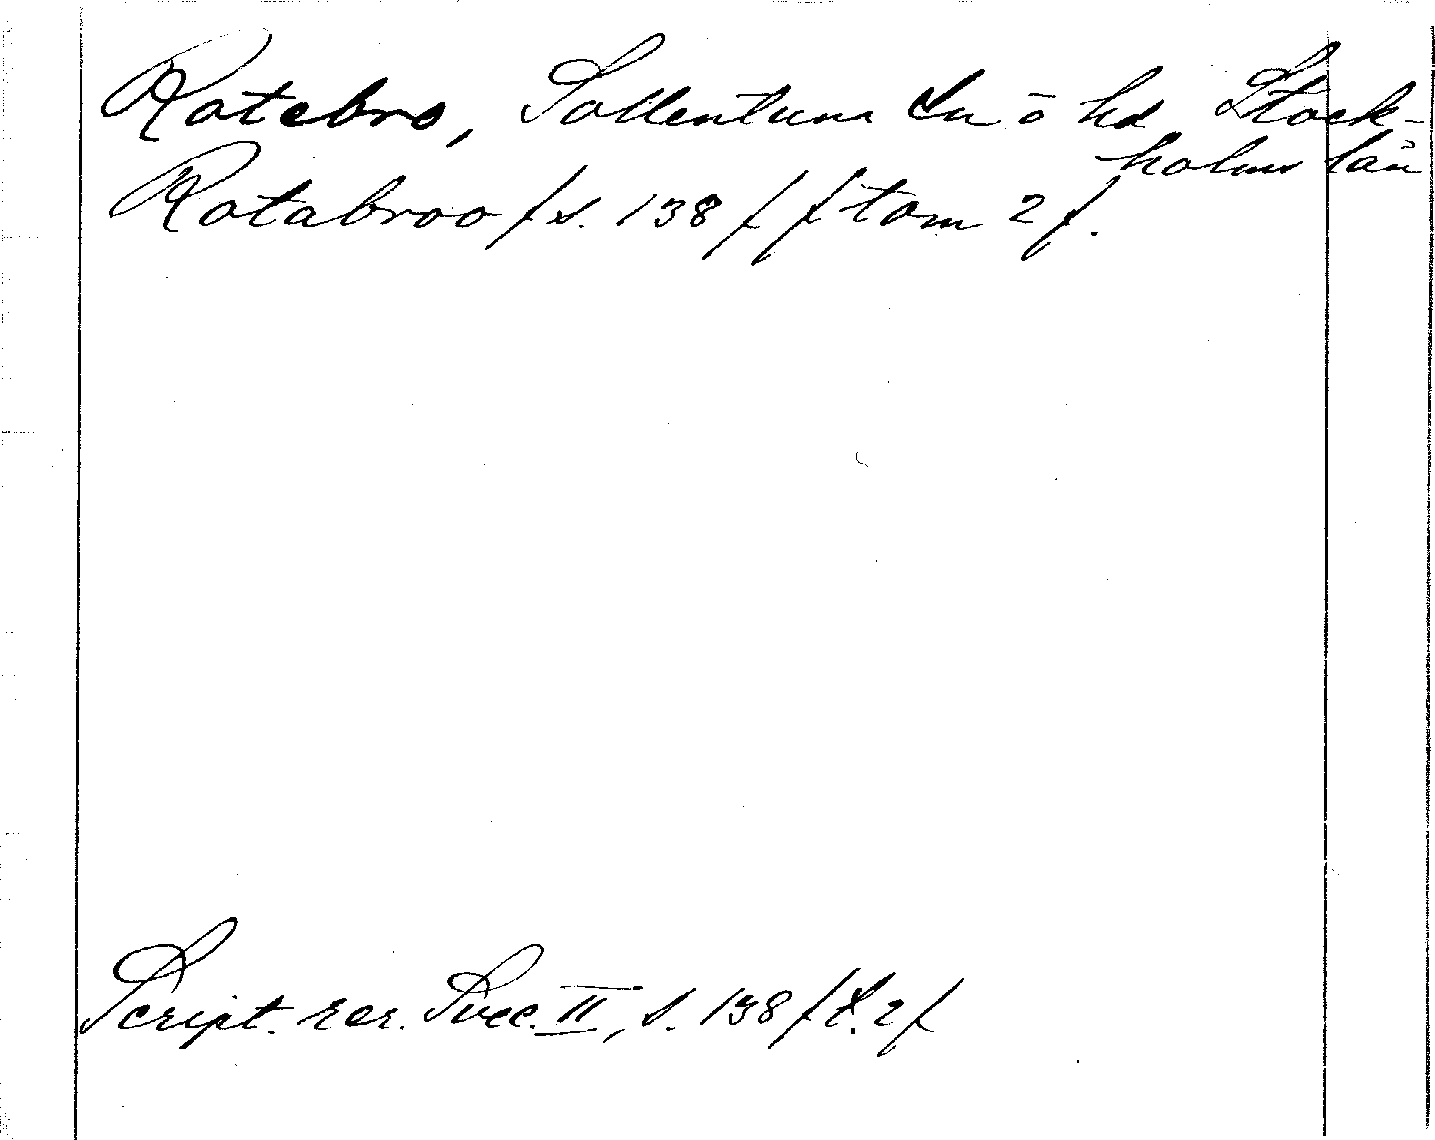 Rotebro, Sollentuna sn o hd, Stock-
holms län
Rotabroo / s. 138 / / tom 2 /.
Script. rer. Svec. II, s. 138 / t. 2 /